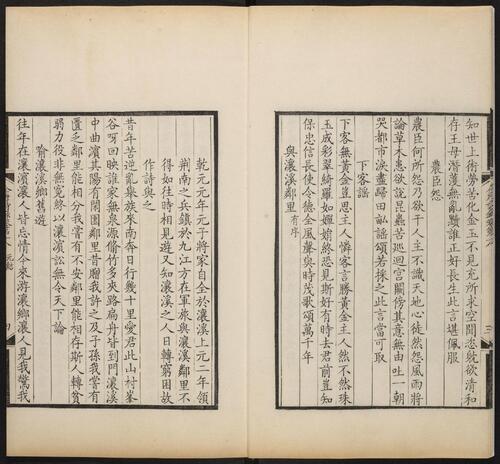 知世上術勞苦化金玉不見充所求空聞恣耽欲清和
存王母潛濩無亂黷誰正好長生此言堪佩服
農臣怨
農臣何所怨乃欲干人主不識天地心徒然怨風雨將
論草木患欲說昆蟲苦巡迴宮闕傍其意無由吐一朝
哭都市淚盡歸田畝謠頌若採之此言當可取
下客謠
下客無黃金豈思主人憐客言勝黃金主人然不然珠
玉成彩翠綺羅如嬋娟終恐見斯好有時去君前豈知
保忠信長使令德全風聲與時茂歌頌萬千年
與瀼溪鄰里有序
乾元元年元子將家自全於瀼溪上元二年領
荊南之兵鎮於九江方在軍旅與瀼溪鄰里不
得如往時相見遊又知瀼溪之人日轉窮困故
作詩與之
昔年苦逆亂舉族來南奔日行幾十里愛君此山村峯
谷呀回映誰家無泉源脩竹多夾路扁舟皆到門瀼溪
中曲濱其陽有閒園鄰里昔贈我許之及子孫我嘗有
匱乏鄰里能相分我嘗有不安鄰里能相存斯人轉貧
弱力役非無寃終以瀼濱訟無令天下論
喻瀼溪鄉舊遊
往年在瀼濱瀼人皆忘情今來游瀼鄉瀼人見我驚我